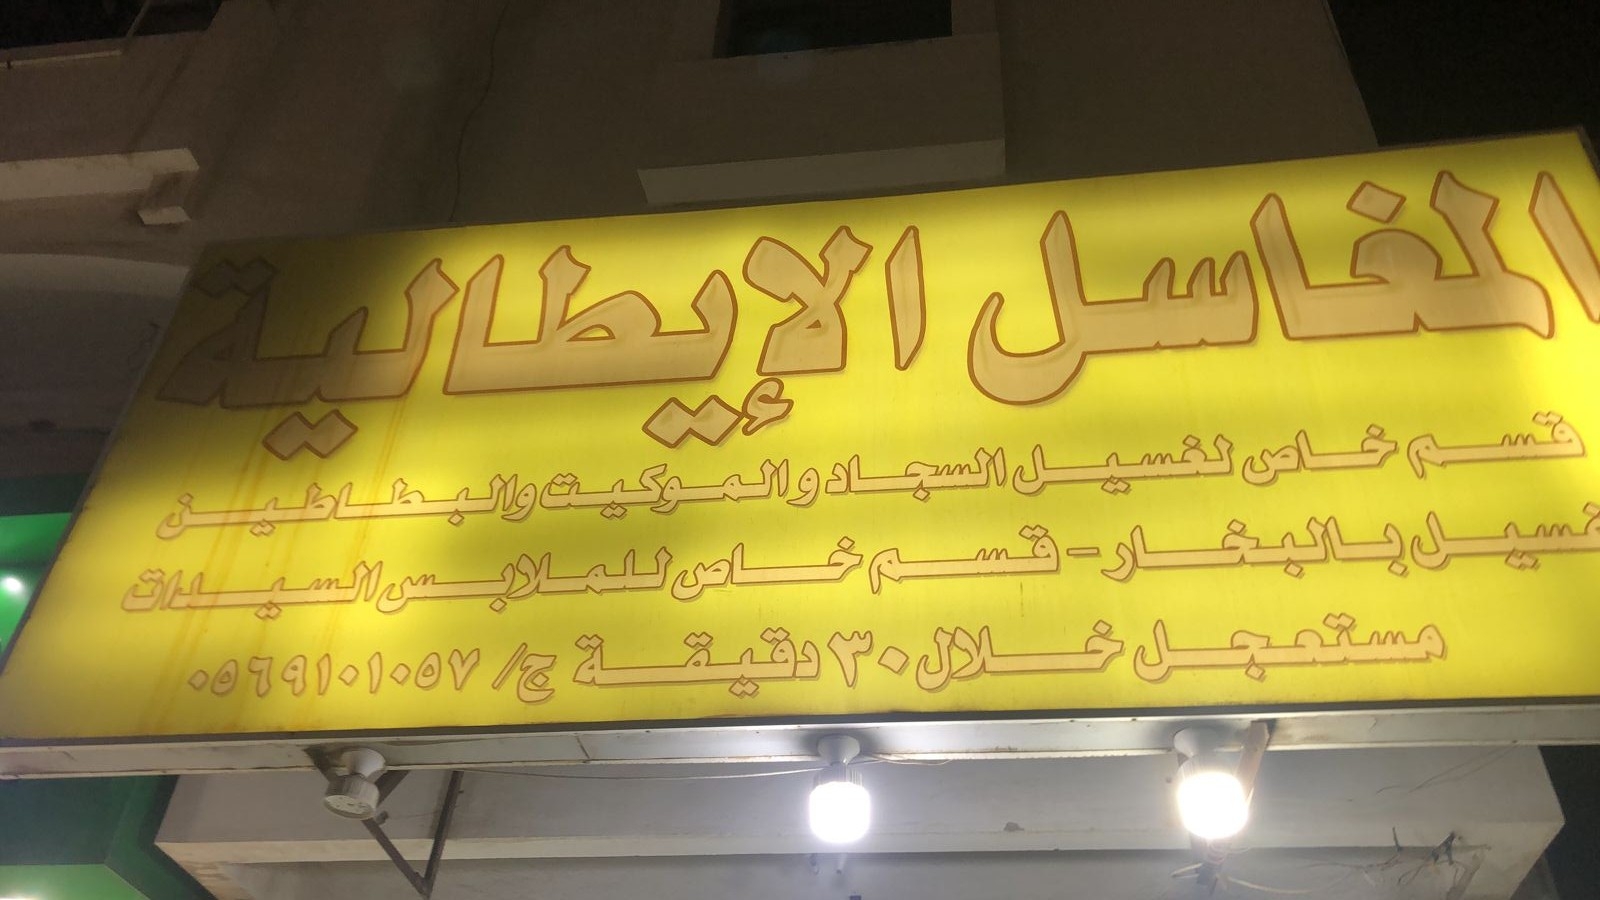 المغاسل الإيطالية
قسم خاص لغسيل السجاد والموكيت والبطاطين
غسيل بالبخار - قسم خاص للملابس السيدات
مستعجل خلال ٣٠ دقيقة ج/ ٠٥٦٩١٠١٠٥٧